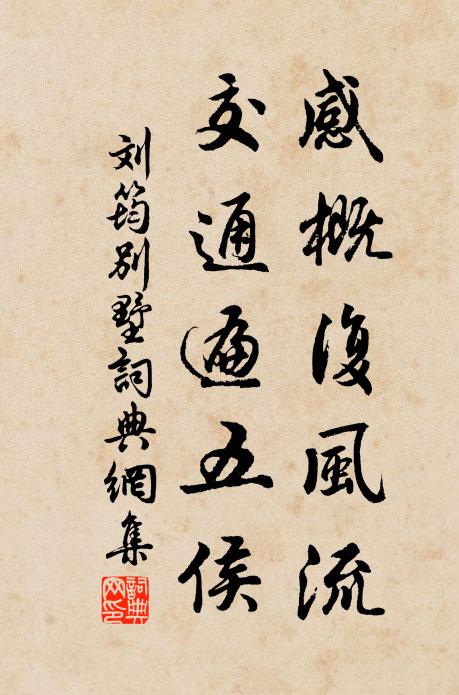 感概復風流
交通遍五侯
刘筠別墅詞典網集
詞典網印